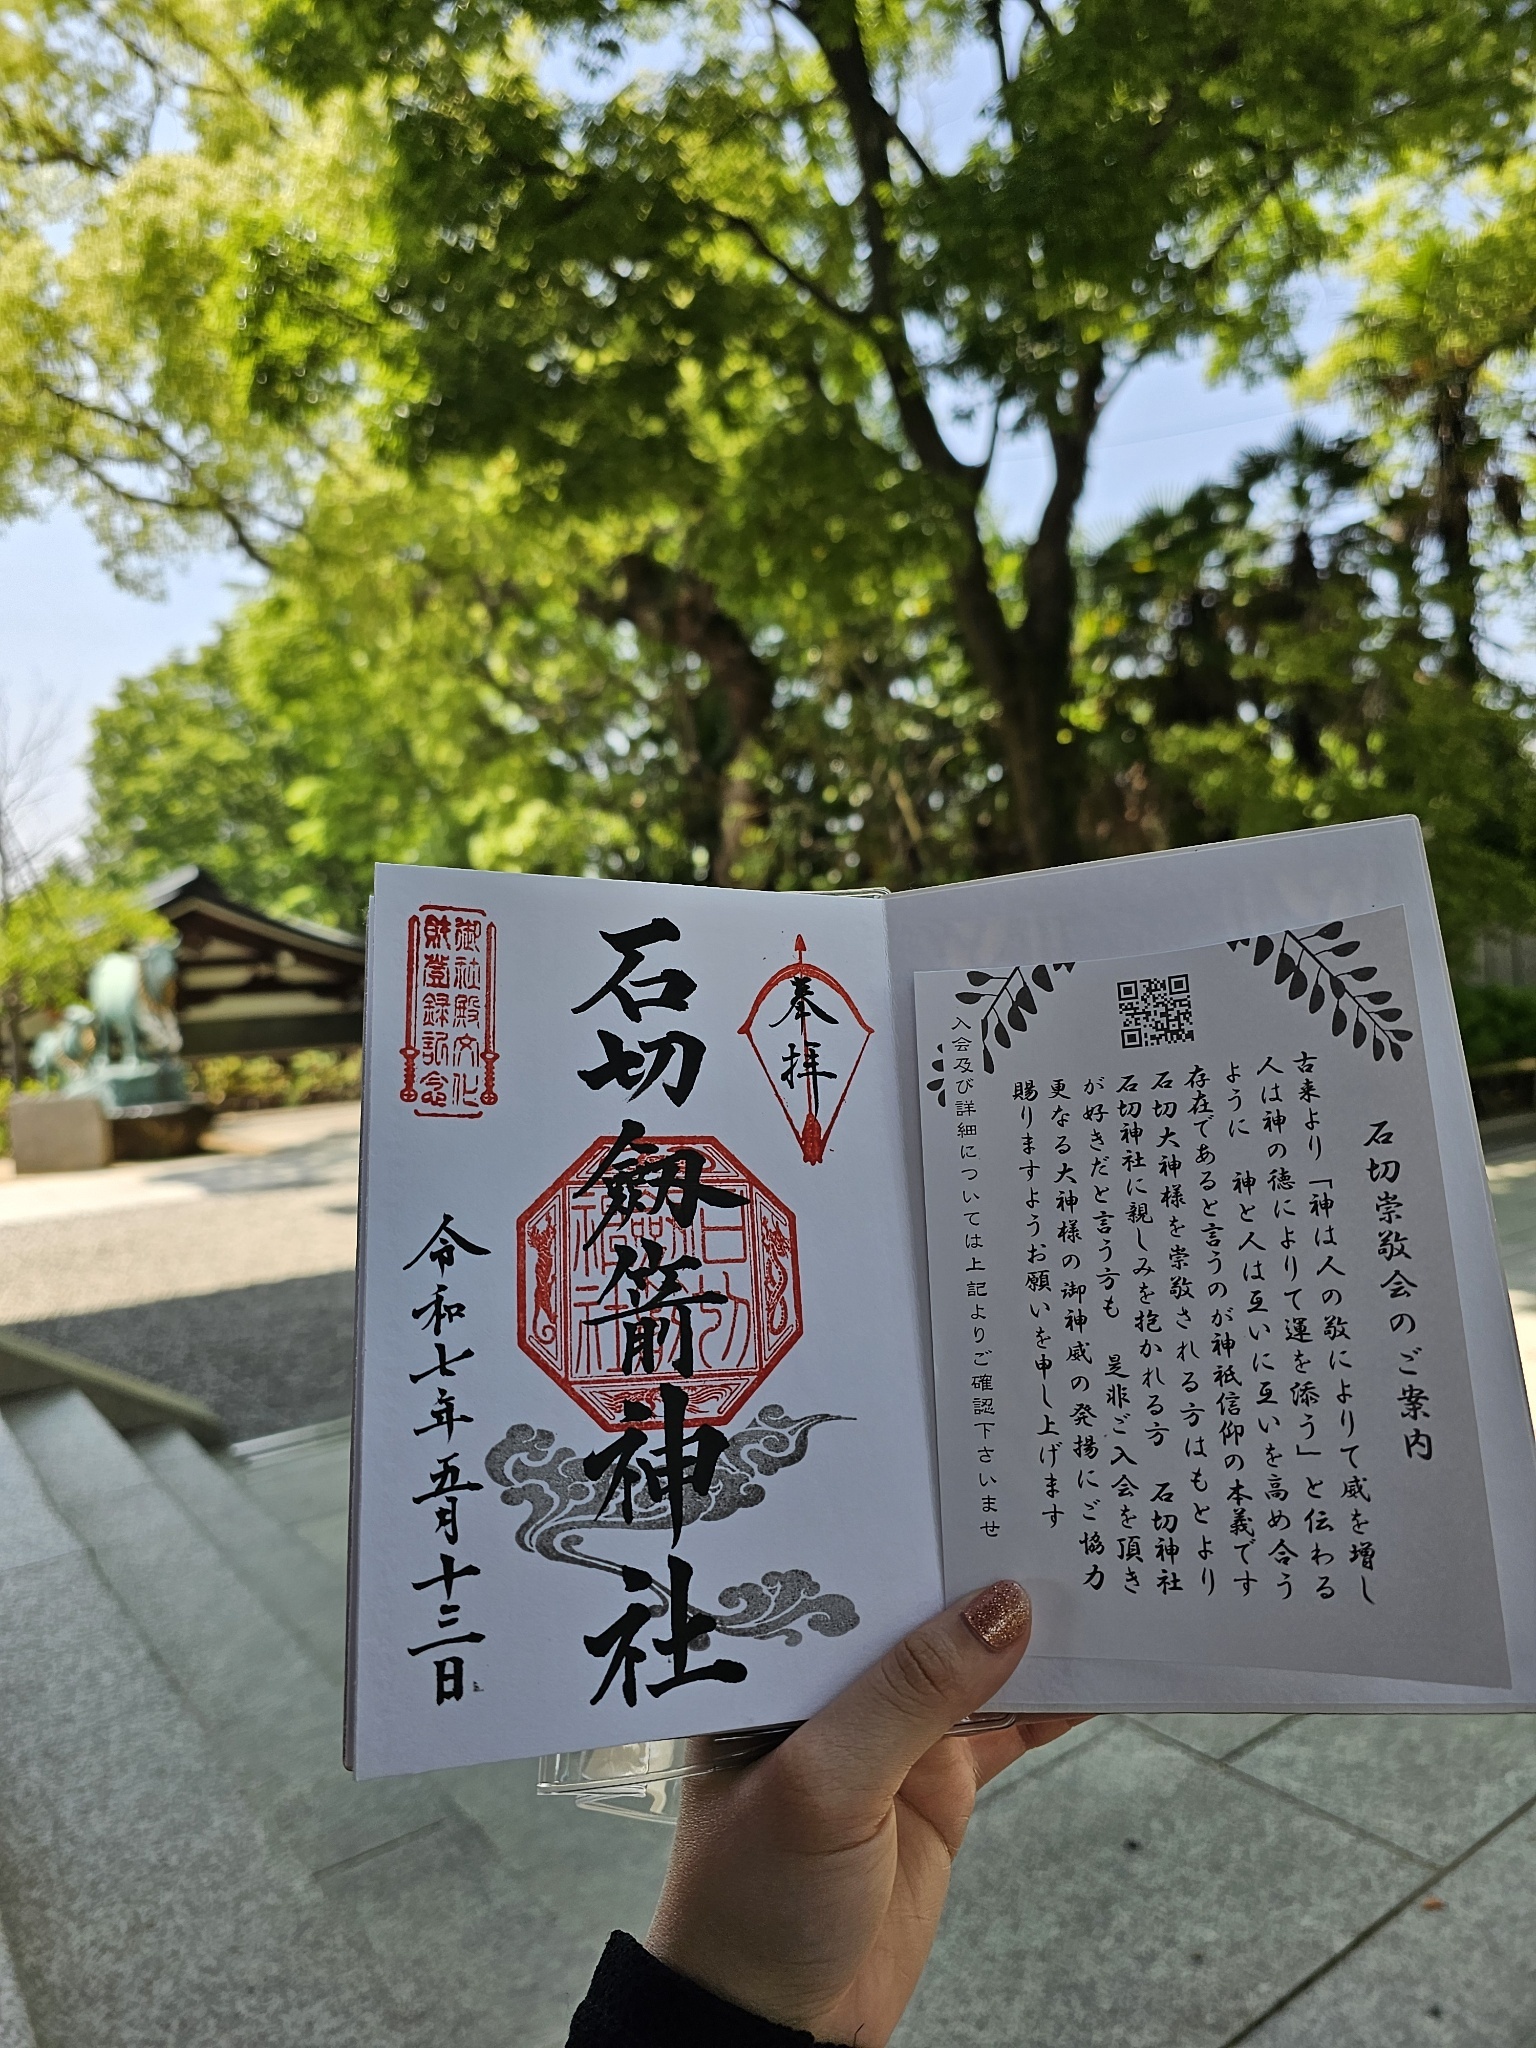 石切崇敬会のご案内
古来より「神は人の敬によりて威を増し
人は神の徳によりて運を添う」と伝わる
ように 神と人は互いに互いを高め合う
存在であると言うのが神祇信仰の本義です
石切大神様を崇敬される方はもとより
石切神社に親しみを抱かれる方 石切神社
が好きだと言う方も 是非ご入会を頂き
更なる大神様の御神威の発揚にご協力
賜りますようお願いを申し上げます
入会及び詳細については上記よりご確認下さいませ
奉拝
石切劔箭神社
御社殿文化
財登録記念
令和七年五月十三日